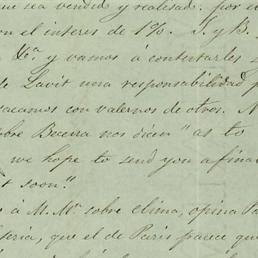 que sea vendido y realisad. por el
on el interes de 1%. J. y B.
Xª. y vamos á contentarles
de Lavit una responsabilidad p
sacamos con valernos de otros. N
obre Becerra nos dicen "as to
we hope to send you a final
t soon."
á M. Mº. sobre clima, opina Pa
seria, que el de Paris parece que